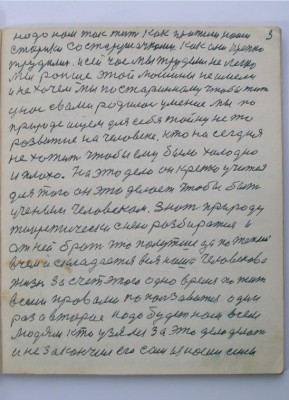 надо нам так жить как прижили наши 3
старики со старушачками. Как они крепко
трудились. и сей час мы трудимся не легко
Мы раньше этой машины не имели
и не хочем мы по старинному чтобы жить
у нас с вами родилося умение мы по
природе ищем для себя тайну не то
развитие на человеке, кто на сегодня
не хотит чтобы ему было холодно
и плохо. На это дело он крепко учится
для того он это делает чтобы быть
ученым человеком. Знать природу
теоретически с нею разбиратся и
от ней брать что получше да потеплей
в чем и складается вся наша человекова
жизнь за счет этого одно время пожить
всеми правами попользоватся один
раз а второе надо будет нам всем
людям кто узялся за это дело делать
и не закончил его сам из носил силы